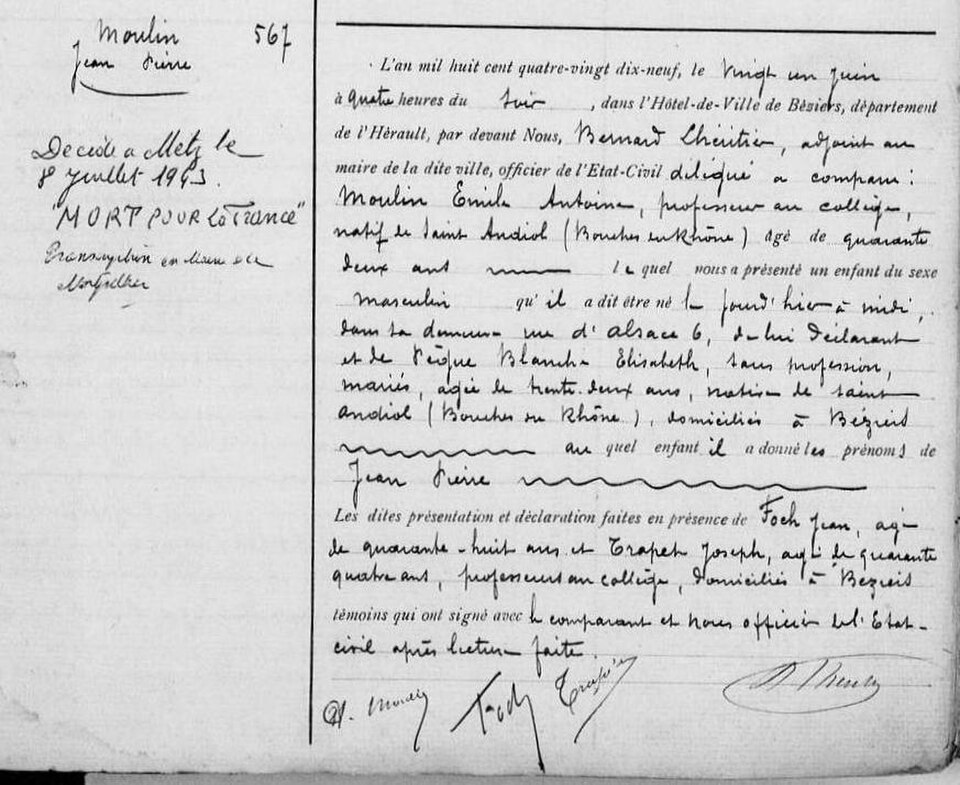 Moulin 567
Jean Pierre
Décédé à Metz le
8 juillet 1943.
"MORT POUR LA France"
Transcription en Mairie de
Montpellier
L'an mil huit cent quatre-vingt dix-neuf, le vingt un juin
à quatre heures du soir, dans l'Hôtel-de-Ville de Béziers, département
de l'Hérault, par devant Nous, Bernard Lhéritier, adjoint au
maire de la dite ville, officier de l'Etat-Civil délégué a comparu :
Moulin Emile Antoine, professeur au collège,
natif de Saint Andiol (Bouches du Rhône) agé de quarante
deux ans le quel nous a présenté un enfant du sexe
masculin qu'il a dit être né le jourd'hier à midi,
dans sa demeure rue d'Alsace 6, de lui Déclarant
et de Pègue Blanche Elisabeth, sans profession,
mariés, agée de trente-deux ans, native de Saint
Andiol (Bouches du Rhône), domiciliés à Béziers
au quel enfant il a donné les prénoms de
Jean Pierre
Les dites présentation et déclaration faites en présence de Foch Jean, agé
de quarante-huit ans et Trapet Joseph, agé de quarante
quatre ans, professeurs au collège, domiciliés à Béziers
témoins qui ont signé avec le comparant et nous officier de l'Etat-
civil après lecture faite.
A. Moulin Foch